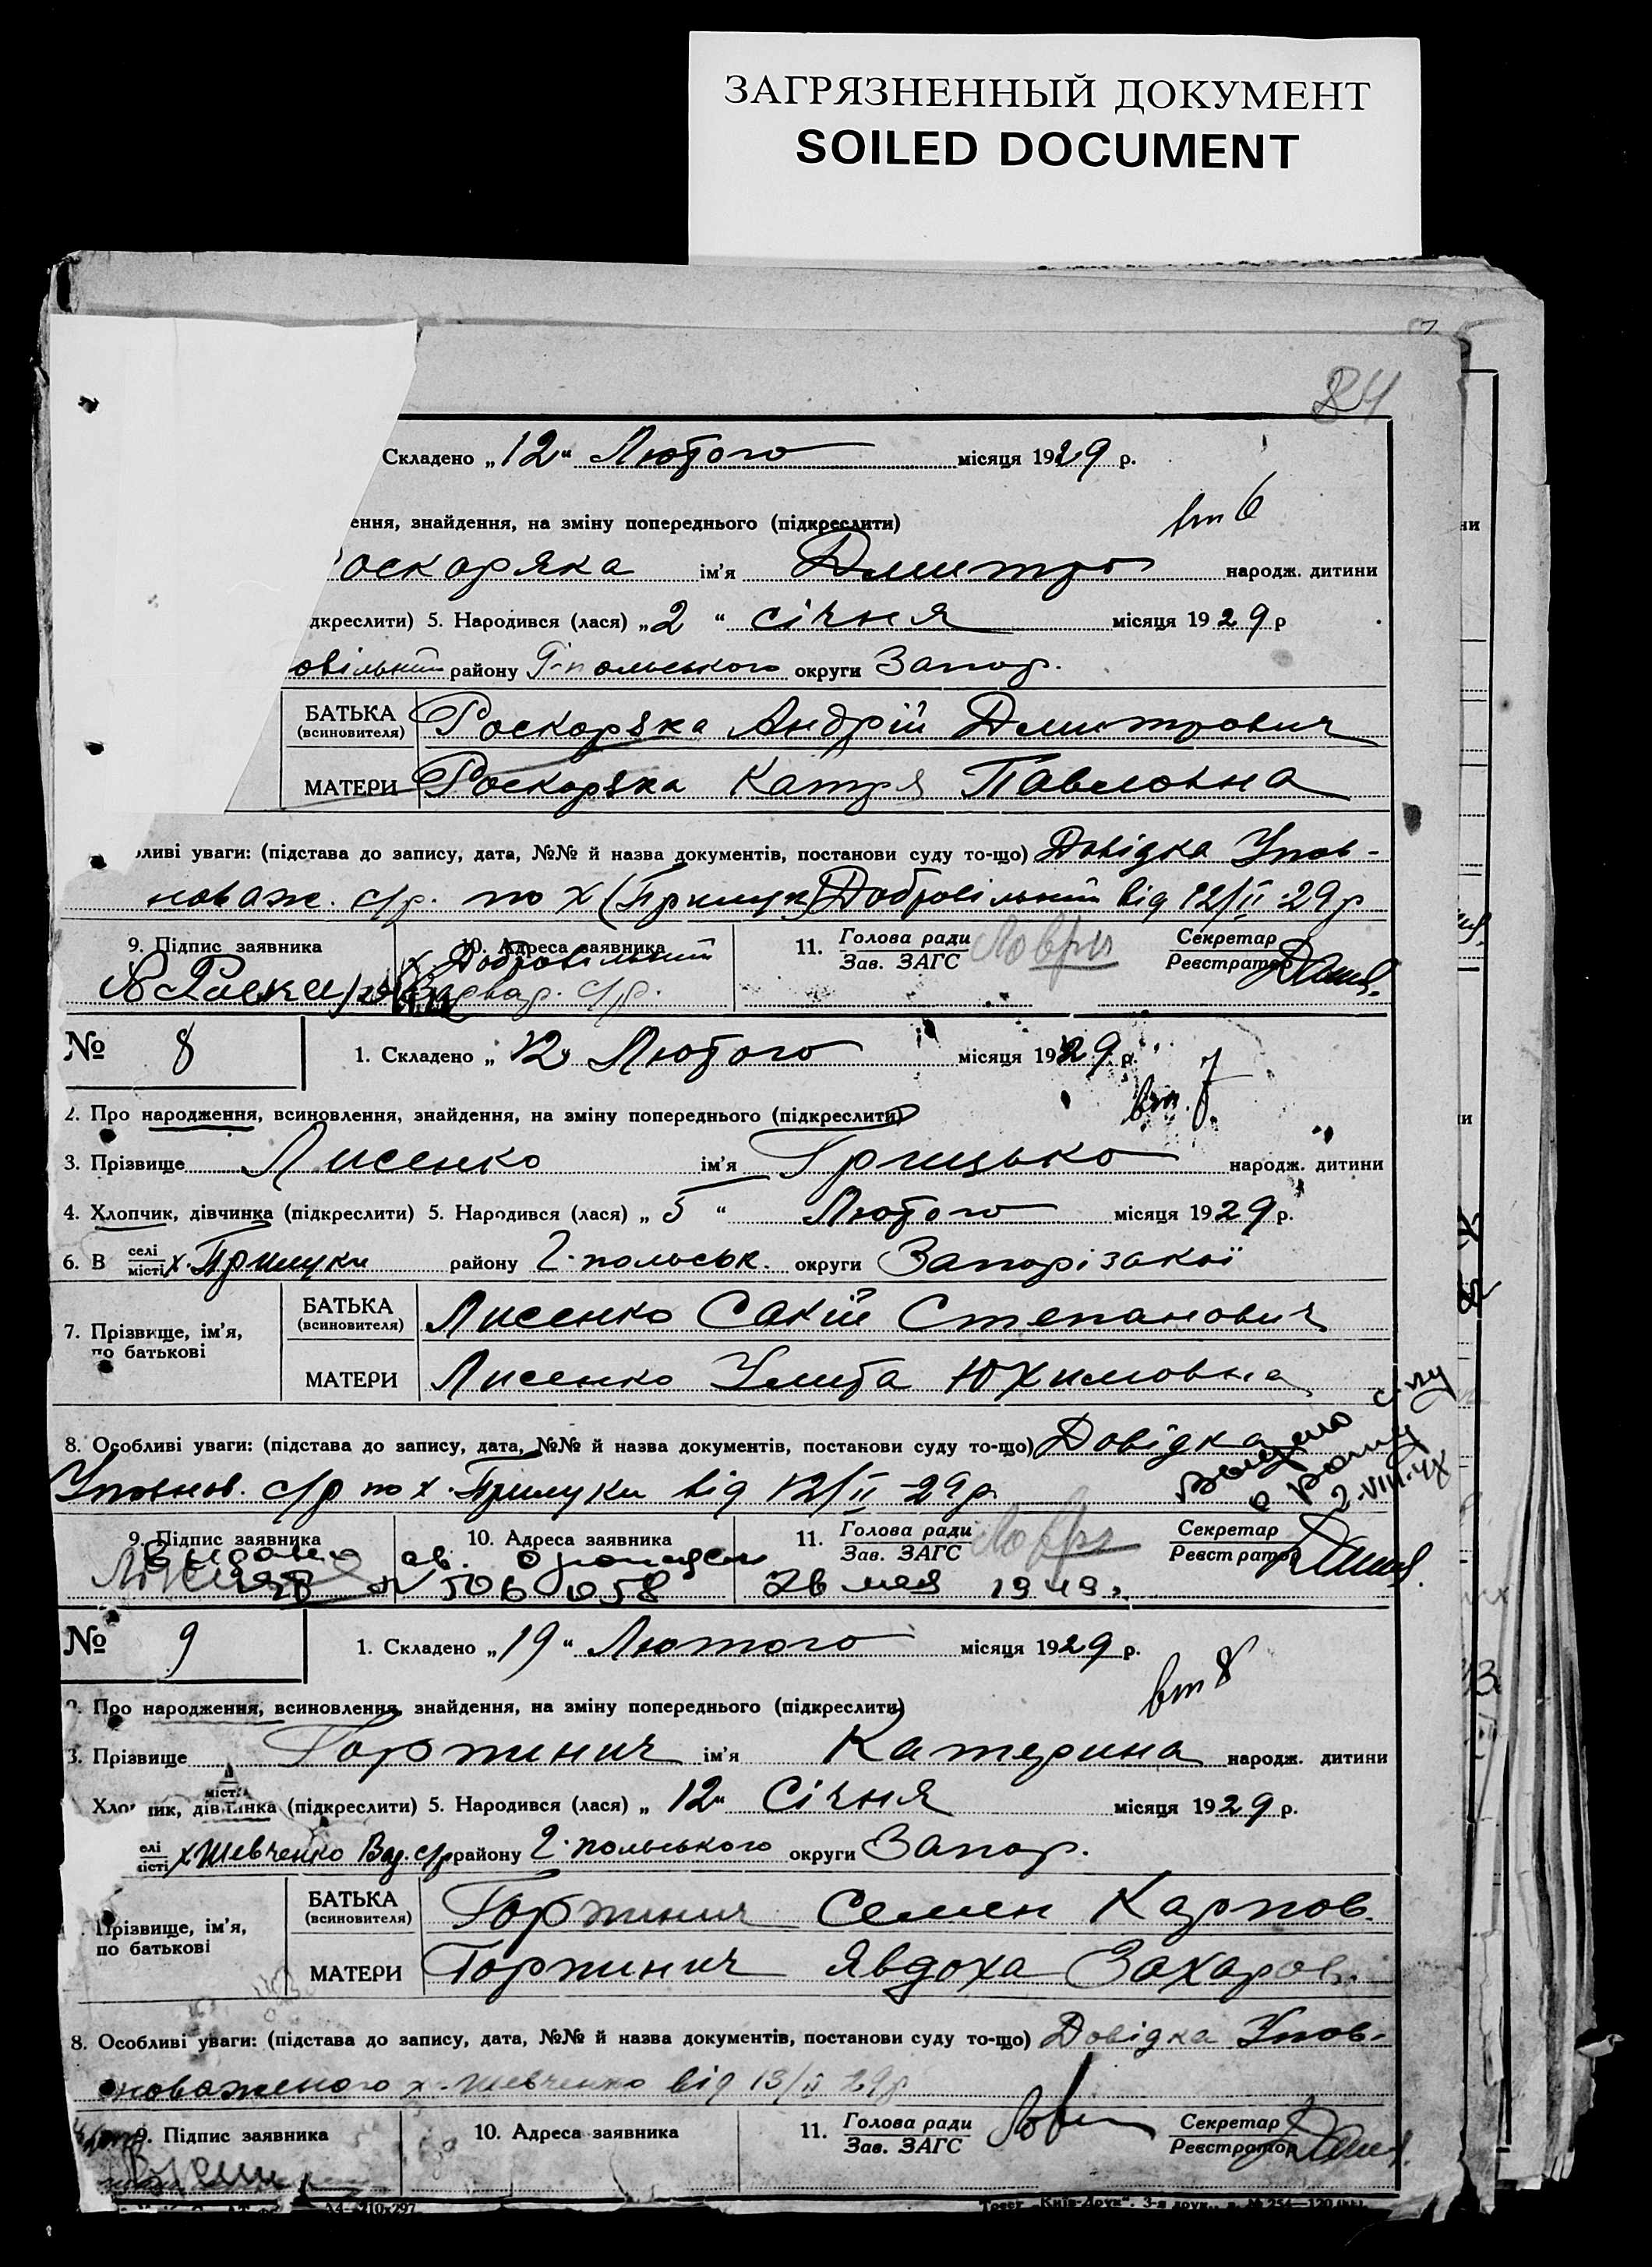 ЗАГРЯЗНЕННЫЙ ДОКУМЕНТ
SOILED DOCUMENT
84
Складено „12“ Лютого місяця 1929 р.
ення, знайдення, на зміну попереднього (підкреслити)
вт 6
оскоряка ім'я Дмитро народж. дитини
дкреслити) 5. Народився (лася) „2“ січня місяця 1929 р
овільний району Г-польського округи Запор.
БАТЬКА (всиновителя) Роскоряка Андрій Дмитрович
МАТЕРИ Роскоряка Катря Павловна
ливі уваги: (підстава до запису, дата, №№ й назва документів, постанови суду то-що) Довідка Упов-
новаж. с/р. по х (Прилуки) Добровільний від 12/II-29 р
9. Підпис заявника 10. Адреса заявника 11. Голова ради Секретар
Зав. ЗАГС Реєстратор
х. Добровільний
с/р.
№ 8 1. Складено „12“ Лютого місяця 1929 р.
вт. 7
2. Про народження, всиновлення, знайдення, на зміну попереднього (підкреслити)
3. Прізвище Лисенко ім'я Грицько народж. дитини
4. Хлопчик, дівчинка (підкреслити) 5. Народився (лася) „5“ Лютого місяця 1929 р.
6. В селі місті х. Прилуки району Г-польськ. округи Запорізакої
7. Прізвище, ім'я, по батькові
БАТЬКА (всиновителя) Лисенко Сакій Степанович
МАТЕРИ Лисенко Улита Юхимовна
8. Особливі уваги: (підстава до запису, дата, №№ й назва документів, постанови суду то-що) Довідка
Уповнов. с/р по х. Прилуки від 12/II-29 р.
9. Підпис заявника 10. Адреса заявника 11. Голова ради Секретар
Зав. ЗАГС Реєстратор
Выдано св. о рожден
№ 506058 26 мая 1949 г.
№ 9 1. Складено „19“ Лютого місяця 1929 р.
вт 8
2. Про народження, всиновлення, знайдення, на зміну попереднього (підкреслити)
3. Прізвище Горпинич ім'я Катерина народж. дитини
Хло ник, дівчинка (підкреслити) 5. Народився (лася) „12“ Січня місяця 1929 р.
елі місті х Шевченко Вар. с/р району Г-польського округи Запор.
Прізвище, ім'я, по батькові
БАТЬКА (всиновителя) Горпинич Семен Карпов.
МАТЕРИ Горпинич Явдоха Захаров.
8. Особливі уваги: (підстава до запису, дата, №№ й назва документів, постанови суду то-що) Довідка Упов-
новаженого х. Шевченко від 13/II 29 р
9. Підпис заявника 10. Адреса заявника 11. Голова ради Секретар
Зав. ЗАГС Реєстратор
А4—210х297
Трест „Київ-Друк“. 3-я друк.